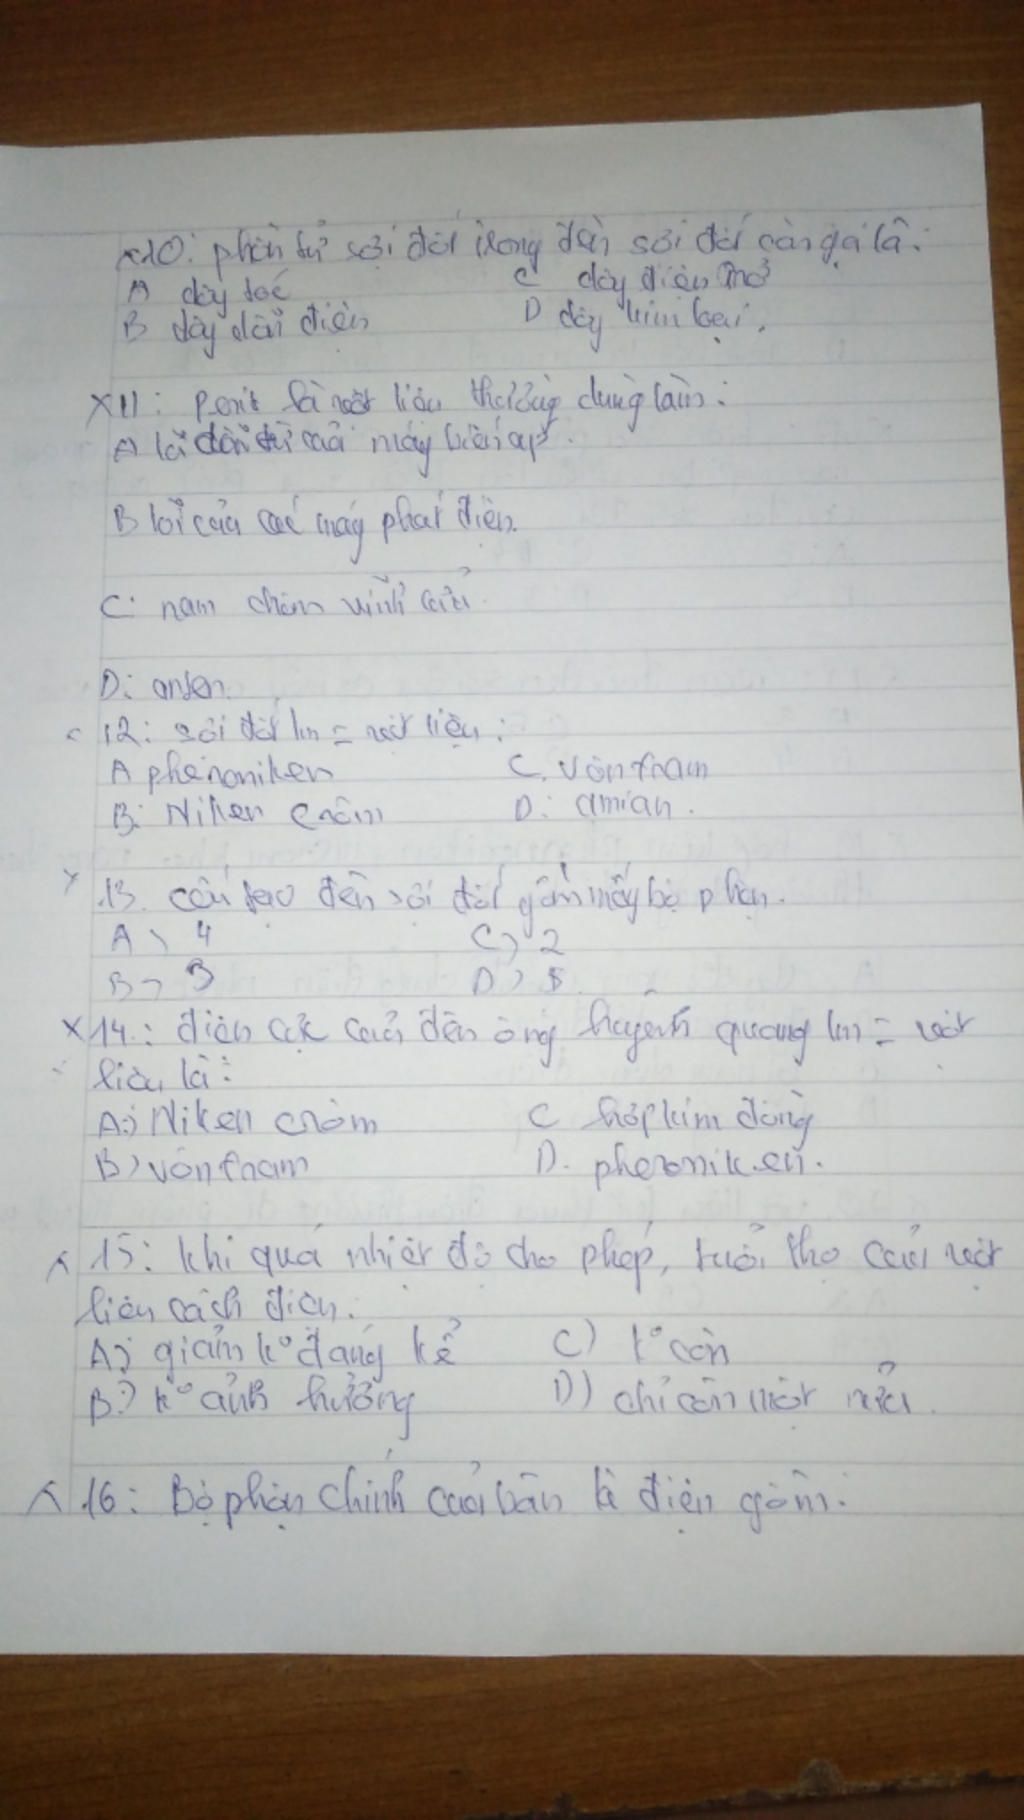 x10: phần tử sợi đốt trong đèn sợi đốt còn gọi là:
A dây tóc
C dây điện trở
B dây dẫn điện
D dây kim loại.
x11: Perit là vật liệu thường dùng làm:
A lõi dẫn từ của máy biến áp.
B lõi của các máy phát điện.
C: nam châm vĩnh cửu.
D: anten.
12: sợi đốt ln = vật liệu:
A pheroniken
C. Vônfram
B: Niken crôm
D: amian.
13. cấu tạo đèn sợi đốt gồm mấy bộ phận.
A) 4
C) 2
B) 3
D) 5
x14.: điện cực của đèn ống huỳnh quang ln = vật
liệu là:
A:) Niken crôm
C hợp kim đồng
B) vônfram
D. pheroniken.
15: khi quá nhiệt độ cho phép, tuổi thọ của vật
liệu cách điện.
A:) giảm k° đáng kể
C) k° còn
B:) k° ảnh hưởng
D) chỉ còn một nửa.
16: Bộ phận chính của bàn là điện gồm: